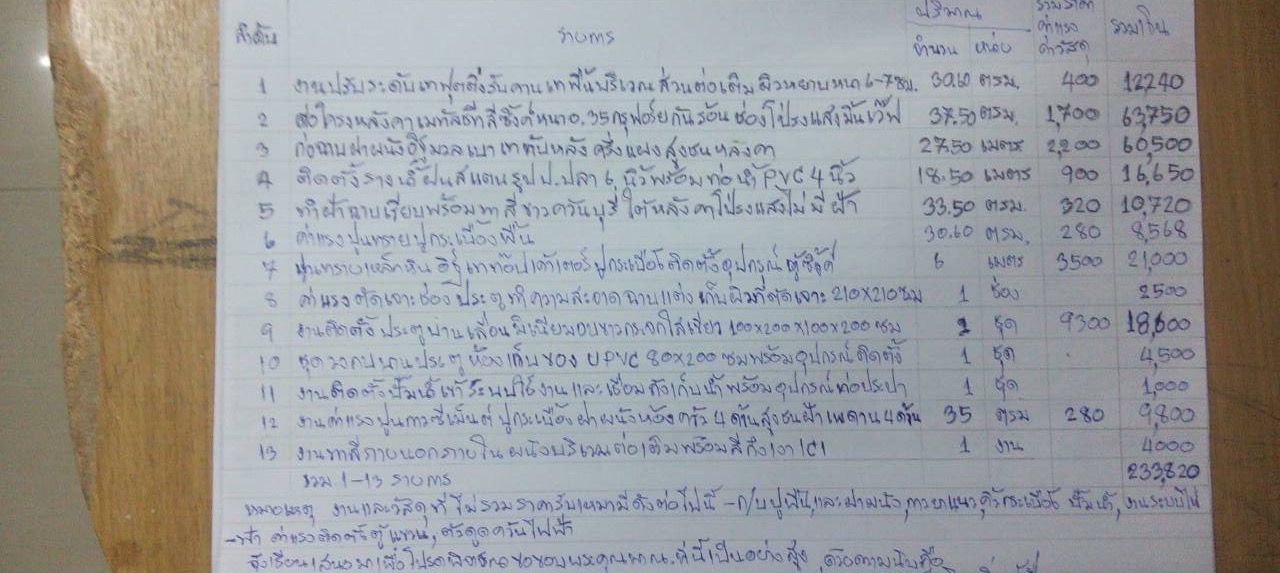 ลำดับ รายการ ปริมาณ จำนวน หน่วย รวมราคา ค่าแรง ค่าวัสดุ รวมเงิน
1 งานปรับระดับเทฟุตติ่งรับคานเทพื้นบริเวณส่วนต่อเติมผิวหยาบหนา 6-7ซม. 30.60 ตรม. 400 12,240
2 ต่อโครงหลังคาเมทัลชีทสีซิ้งค์หนา 0.35กรุฟอร์ยกันร้อนช่องโปร่งแสง 37.50 ตรม. 1,700 63,750
3 ก่อฉาบผ่าผนังอิฐมวลเบาเททับหลังครึ่งแผงสูงชนหลังคา 27.50 เมตร 2,200 60,500
4 ติดตั้งรางน้ำฝนสแตนรูปป.ปลา 6 นิ้วพร้อมท่อน้ำ PVC 4 นิ้ว 18.50 เมตร 900 16,650
5 ทำฝ้าฉาบเรียบพร้อมทาสีขาวควันบุรี่ ใต้หลังคาโปร่งแสงไม่มีฝ้า 33.50 ตรม. 320 10,720
6 ค่าแรงปูนทรายปูกระเบื้องพื้น 30.60 ตรม. 280 8,568
7 ปูนทรายเหล็กหิน อิฐเทท๊อปเค้าเตอร์ปูกระเบื้องติดตั้งอุปกรณ์ 6 เมตร 3500 21,000
8 ค่าแรงตัดเจาะช่องประตูทำความสะอาดฉาบแต่งเก็บผิวที่ตัดเจาะ 210x210ซม 1 ช่อง 2500
9 งานติดตั้งประตูบานเลื่อนมิเนียมอบขาวกระจกใสเขียว 100x200x100x200 ซม 2 ชุด 9300 18,600
10 ชุดวงกบบานประตูห้องเก็บของ UPVC 80x200 ซมพร้อมอุปกรณ์ติดตั้ง 1 ชุด 4,500
11 งานติดตั้งปั๊มน้ำเข้าระบบใช้งานและเชื่อมถังเก็บน้ำพร้อมอุปกรณ์ท่อประปา 1 ชุด 1,000
12 งานค่าแรงปูนกาวซีเม็นต์ปูกระเบื้องฝาผนังห้องครัว 4 ด้านสูงชนฝ้าเพดาน 4 ด้าน 35 ตรม 280 9,800
13 งานทาสีภายนอกภายในผนังบริเวณต่อเติมพร้อมสีกึ่งเงา ICI 1 งาน 4000
รวม 1-13 รายการ 233,820
หมายเหตุ งานและวัสดุที่ไม่รวมราคารับเหมามีดังต่อไปนี้ - ก/บปูพื้น,และฝาผนัง,กาวยาแนว,คิ้วกระเบื้อง ปั๊มน้ำ, งานระบบไฟ
-ฟ้า ค่าแรงติดตั้งตู้แขวน, ตัวดูดควันไฟฟ้า
จึงเรียนเสนอมาเพื่อโปรดพิจารณาขอขอบพระคุณมาณ.ที่นี้เป็นอย่างสูง ด้วยความนับถือ